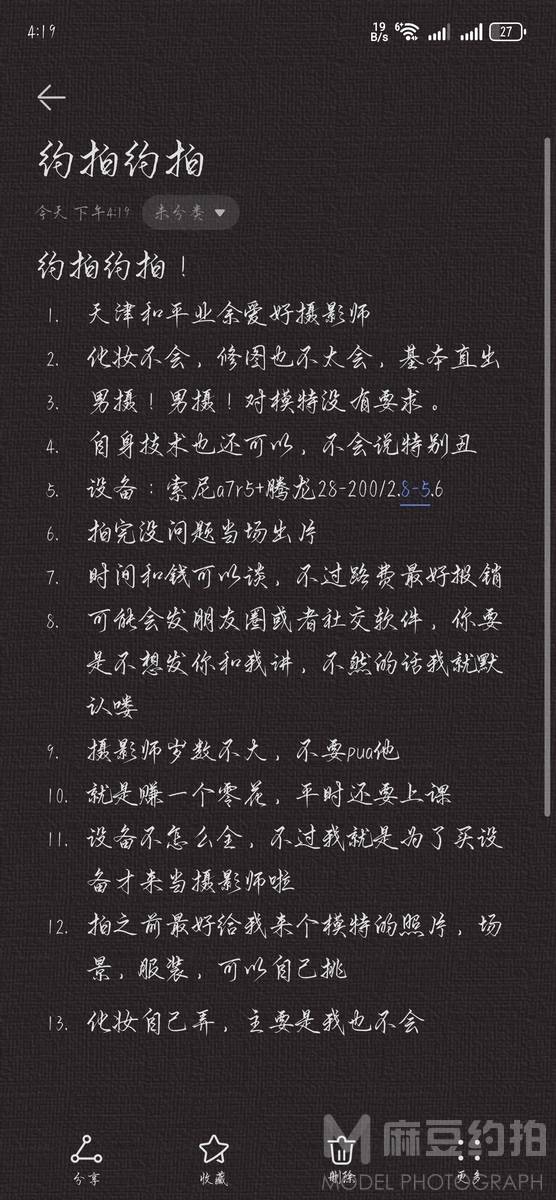 4:19
19 B/s 6+ 27
约拍约拍
今天 下午4:19 未分类
约拍约拍！
1. 天津和平业余爱好摄影师
2. 化妆不会，修图也不太会，基本直出
3. 男摄！男摄！对模特没有要求。
4. 自身技术也还可以，不会说特别丑
5. 设备：索尼a7r5+腾龙28-200/2.8-5.6
6. 拍完没问题当场出片
7. 时间和钱可以谈，不过路费最好报销
8. 可能会发朋友圈或者社交软件，你要
是不想发你和我讲，不然的话我就默
认喽
9. 摄影师岁数不大，不要pua他
10. 就是赚一个零花，平时还要上课
11. 设备不怎么全，不过我就是为了买设
备才来当摄影师啦
12. 拍之前最好给我来个模特的照片，场
景，服装，可以自己挑
13. 化妆自己弄，主要是我也不会
分享 收藏 删除 更多
麻豆约拍
MODEL PHOTOGRAPH